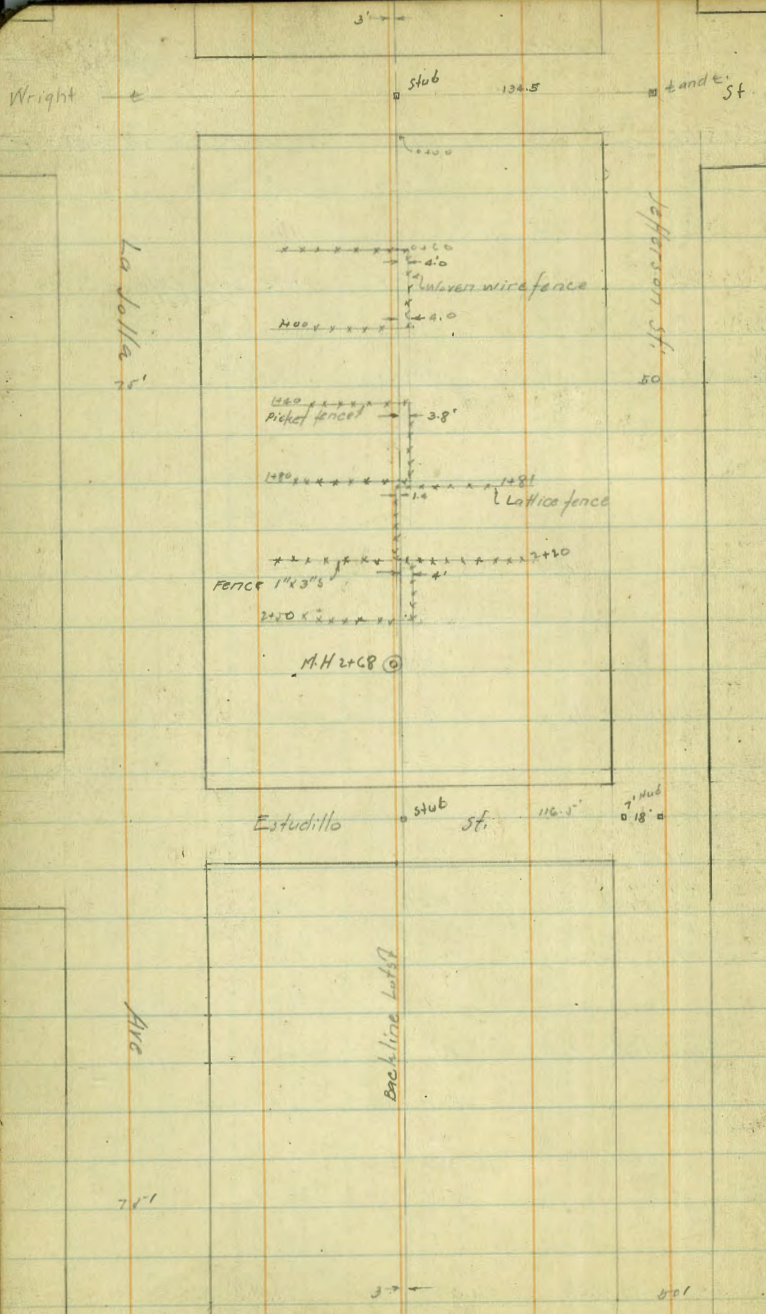 3'
Wright ℄ Stub 134.5 ℄ and ℄. St
0+00
La Jolla
Jefferson St.
0+60
4.0
Woven wire fence
1+00 4.0
75' 50
1+40
Picket fence 3.8'
1+80 1+81
1.4 Lattice fence
2+20
Fence 1"x3"s 4'
2+50
M.H 2+68
Estudillo stub St. 116.5' 7' Hub 18'
Backline Lots
Ave
75'
3 50'